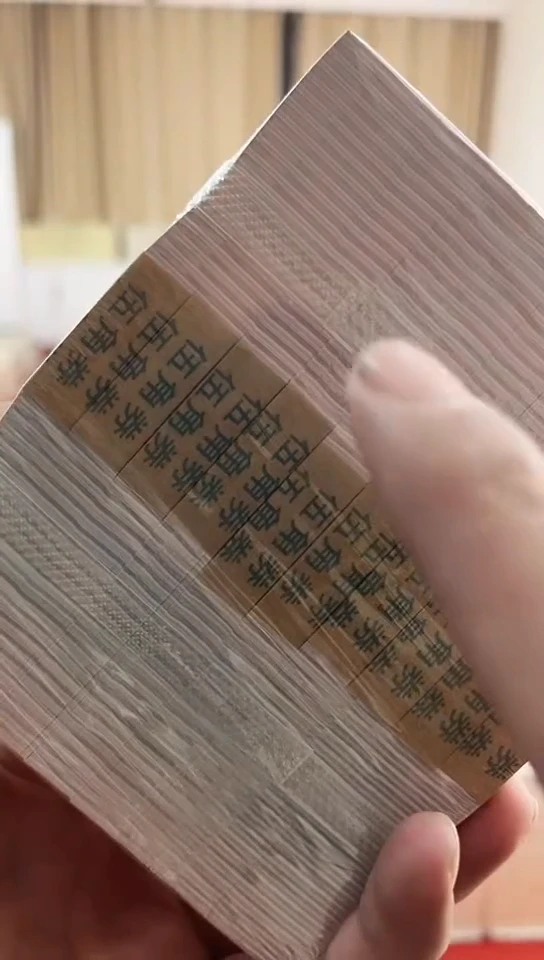 伍角券
伍角券
伍角券
伍角券
伍角券
伍角券
伍角券
伍角券
伍角券
伍角券
伍角券